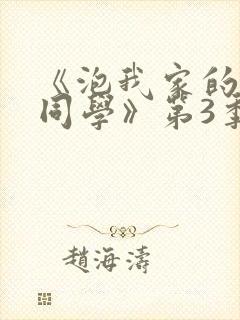 《泡我家的
同學》第3季
趙海濤